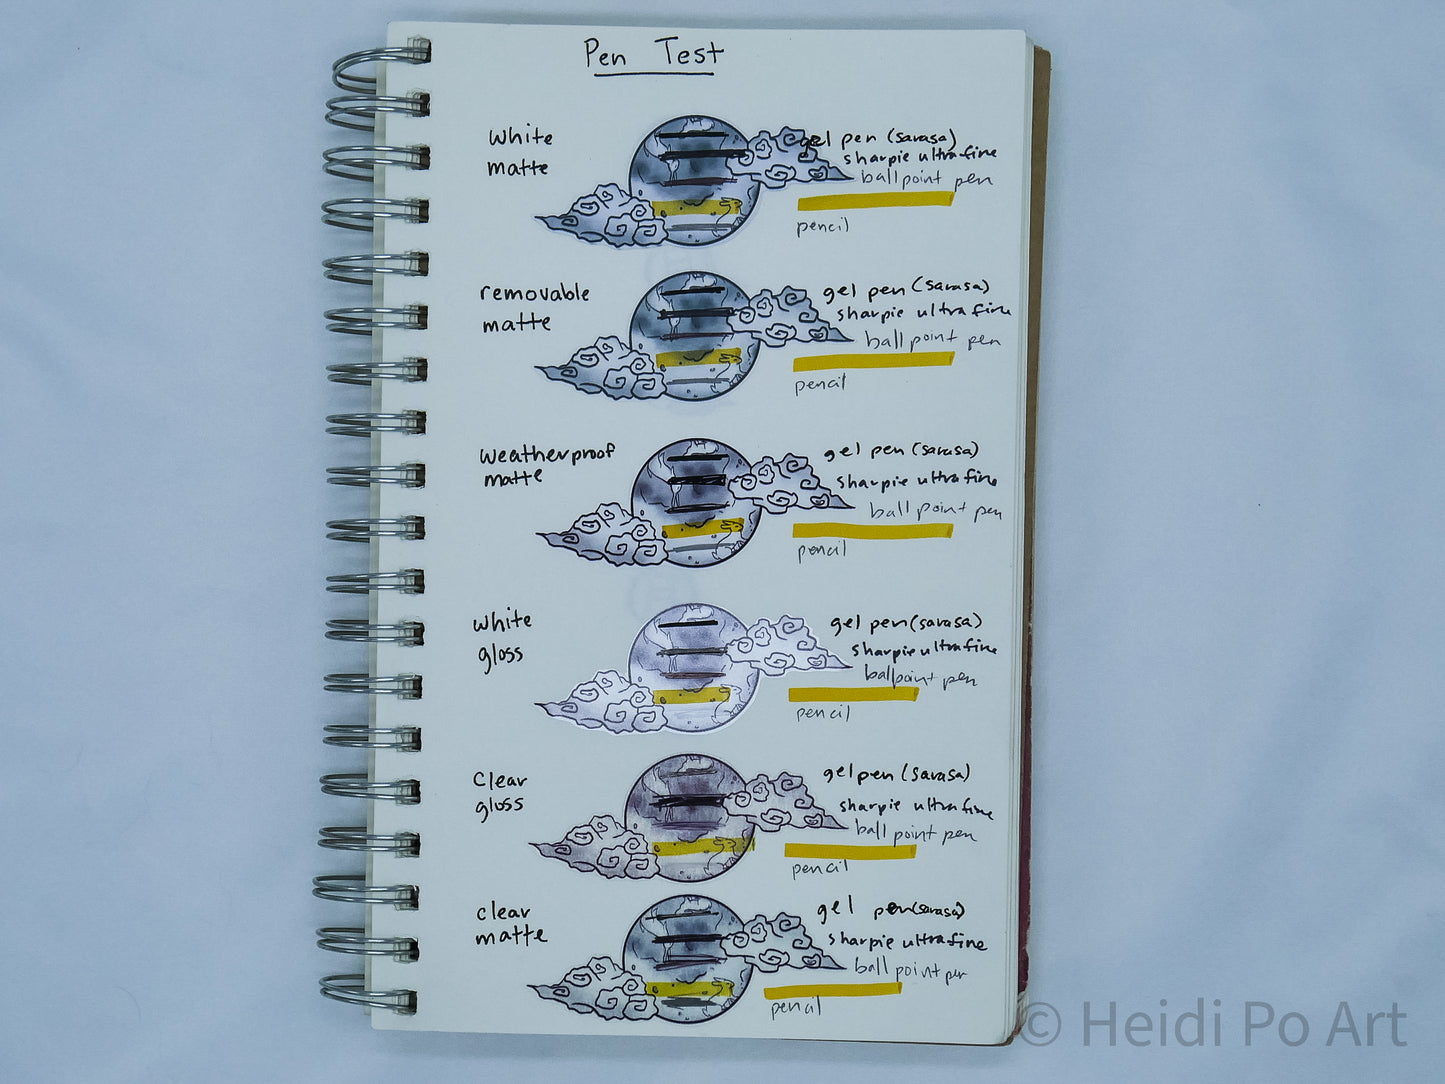 Pen Test
white
matte
gel pen (sarasa)
sharpie ultrafine
ballpoint pen
pencil
removable
matte
gel pen (sarasa)
sharpie ultra fine
ball point pen
pencil
weatherproof
matte
gel pen (sarasa)
sharpie ultra fine
ball point pen
pencil
white
gloss
gel pen (sarasa)
sharpie ultra fine
ballpoint pen
pencil
clear
gloss
gel pen (sarasa)
sharpie ultra fine
ball point pen
pencil
clear
matte
gel pen (sarasa)
sharpie ultra fine
ball point pen
pencil
© Heidi Po Art